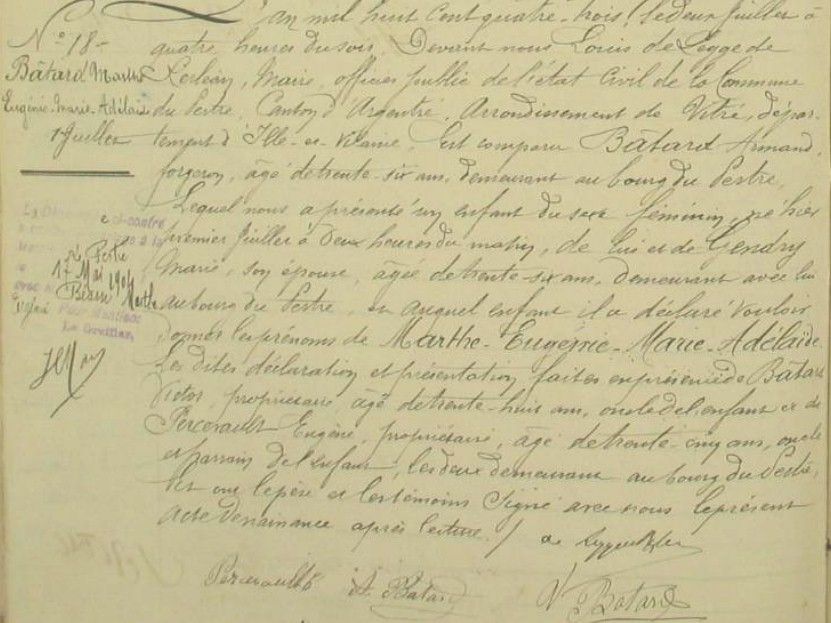 L'an mil huit cent quatre-trois, le deux juillet à
N° 18-
quatre heures du soir, Devant nous Louis de Legge de
Bâtard Marthe
Kerléan, Maire, officier public de l'état Civil de la Commune
Eugénie-Marie-Adélaïde
du Pertre, Canton d'Argentré, Arrondissement de Vitré, dépar-
1 Juillet
tement d'Ille-et-Vilaine, Est comparu Bâtard Armand,
forgeron, âgé de trente-six ans, demeurant au bourg du Pertre,
Lequel nous a présenté un enfant du sexe féminin, né hier
premier Juillet à Deux heures du matin, de lui et de Gendry
Marie, son épouse, âgée de trente-six ans, demeurant avec lui
au bourg du Pertre, et auquel enfant il a déclaré vouloir
donner les prénoms de Marthe-Eugénie-Marie-Adélaïde
Les dites déclaration et présentation faites en présence de Bâtard
Victor, propriétaire, âgé de trente-huit ans, oncle de l'enfant et de
Percevault Eugène, propriétaire, âgé de trente-cinq ans, oncle
et parrain de l'enfant, les deux demeurant au bourg du Pertre,
Et ont le père et les témoins Signé avec nous le présent
acte de naissance après lecture. /
Pertre
17 Mai 1904
Le Greffier,
Percevault A. Batard V Batard